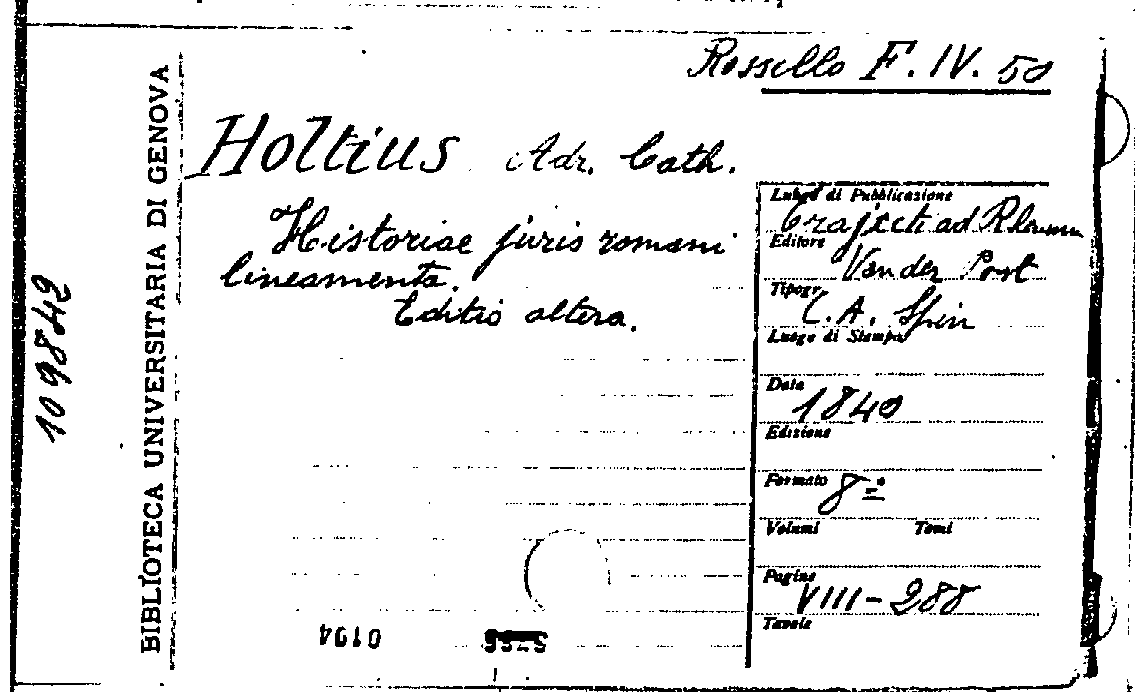 Rossello F. IV. 50
Holtius Adr. Cath.
Historiae juris romani
lineamenta.
Editio altera.
Luogo di Pubblicazione
Trajecti ad Rhenum
Editore
Van der Post
Tipogr.
C. A. Spin
Luogo di Stampa
Data
1840
Edizione
Formato
8=°
Volumi Tomi
Pagine
VIII-288
Tavole
BIBLIOTECA UNIVERSITARIA DI GENOVA
109842
0194